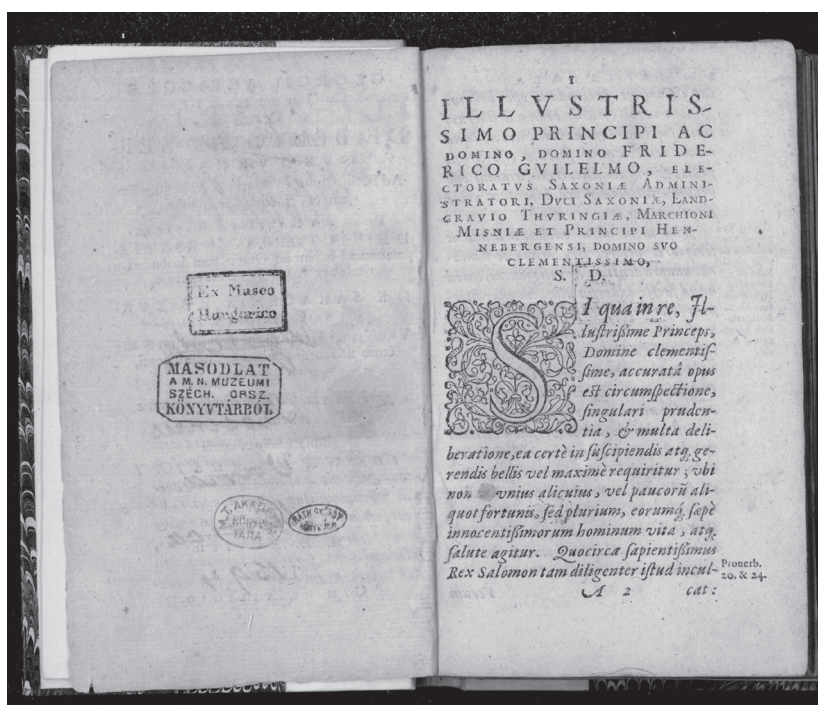 Ex Museo
Hungarico
MASODLAT
A M. N. MUZEUMI
SZÉCH. ORSZ.
KÖNYVTÁRBÓL
M. T. AKADÉMIA
KÖNYV
TÁRA
I
ILLVSTRIS-
SIMO PRINCIPI AC
DOMINO, DOMINO FRIDE-
RICO GVILELMO, ELE-
CTORATVS SAXONIÆ ADMINI-
STRATORI, DVCI SAXONIÆ, LAND-
GRAVIO THVRINGIÆ, MARCHIONI
MISNIÆ ET PRINCIPI HEN-
NEBERGENSI, DOMINO SVO
CLEMENTISSIMO,
S. D.
SI qua in re, Il-
lustrißime Princeps,
Domine clementis-
sime, accuratâ opus
est circumspectione,
singulari pruden-
tia, & multa deli-
beratione, ea certè in suscipiendis atq; ge-
rendis bellis vel maximè requiritur; vbi
non vnius alicuius, vel paucorũ ali-
quot fortunis, sed plurium, eorumq́; sæpè
innocentißimorum hominum vita, atq;
salute agitur. Quocirca sapientißimus
Rex Salomon tam diligenter istud incul-
Prouerb.
20. & 24.
A 2 cat: